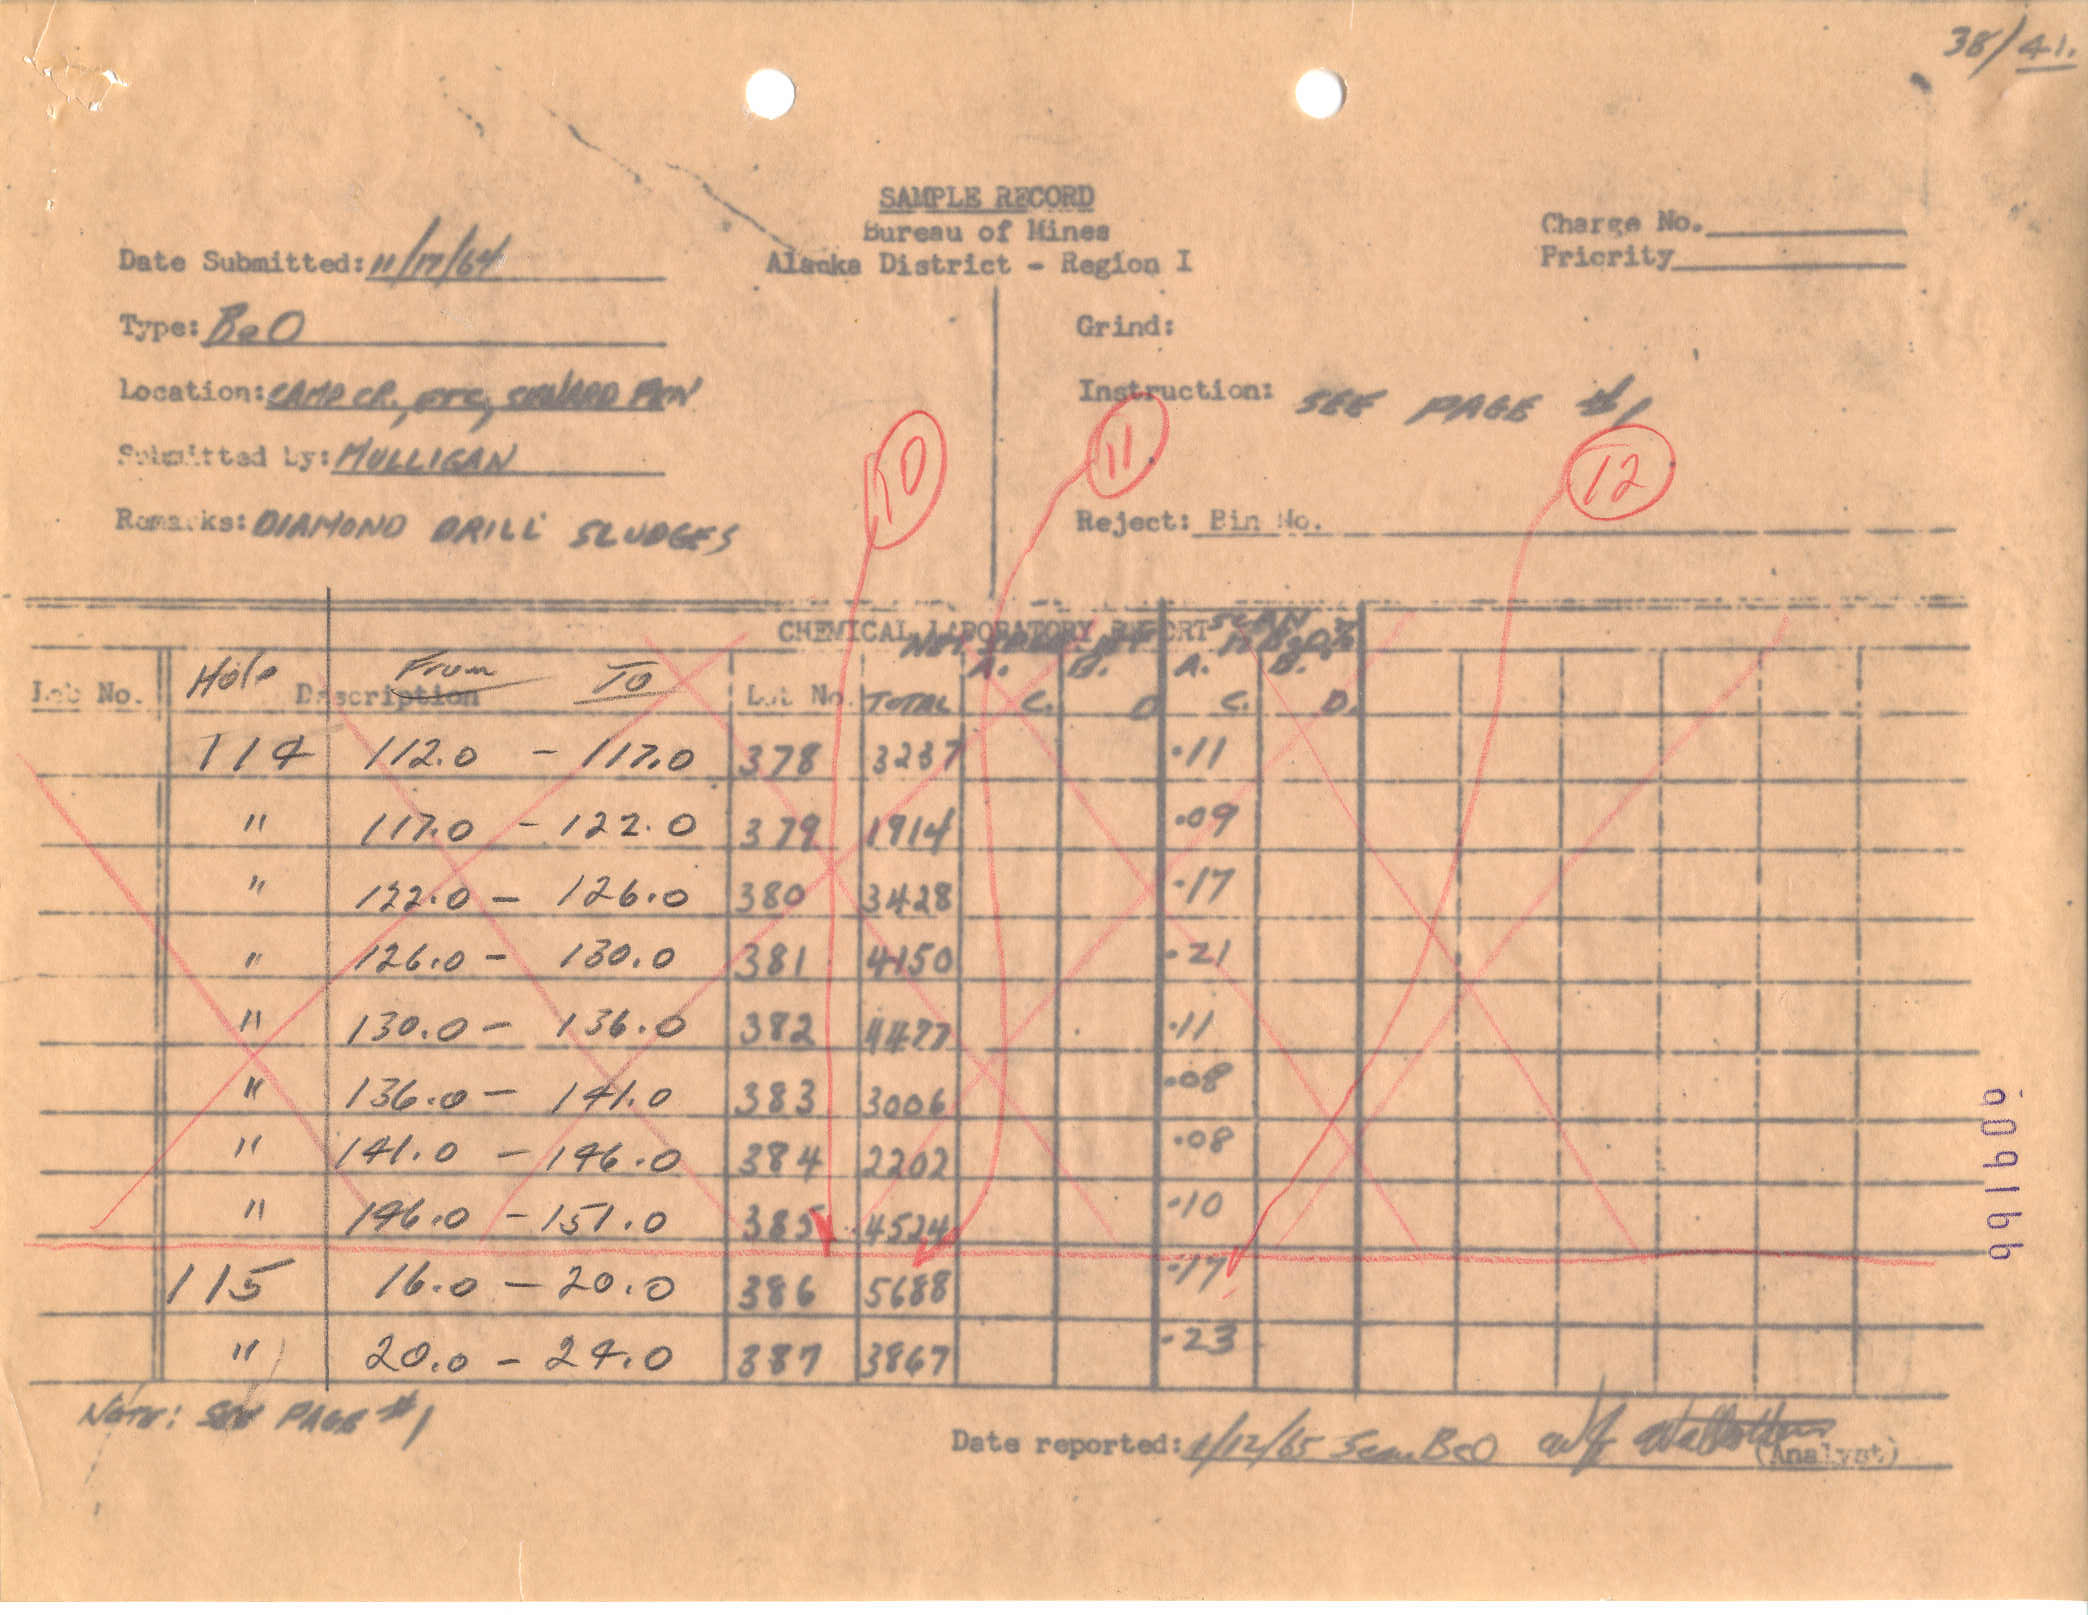 38/41.
SAMPLE RECORD
Bureau of Mines
Alaska District - Region I
Charge No.
Priority
Date Submitted: 11/17/64
Type: BeO
Location: CAMP CR., ETC, SEWARD PEN
Submitted by: MULLIGAN
Remarks: DIAMOND DRILL SLUDGES
Grind:
Instruction: SEE PAGE #1
Reject: Bin No.
10 11 12
CHEMICAL LABORATORY REPORT
SCAN
A. B. A. B.
Lab No. Hole Description From To Lot No. TOTAL C. D C. D.
114 112.0 - 117.0 378 3237 .11
" 117.0 - 122.0 379 1914 .09
" 122.0 - 126.0 380 3428 .17
" 126.0 - 130.0 381 4150 .21
" 130.0 - 136.0 382 4477 .11
" 136.0 - 141.0 383 3006 .08
" 141.0 - 146.0 384 2202 .08
" 146.0 - 151.0 385 4524 .10
115 16.0 - 20.0 386 5688 .17
" 20.0 - 24.0 387 3867 .23
NOTE: SEE PAGE #1
Date reported: 1/12/65 Scan BeO
(Analyst)